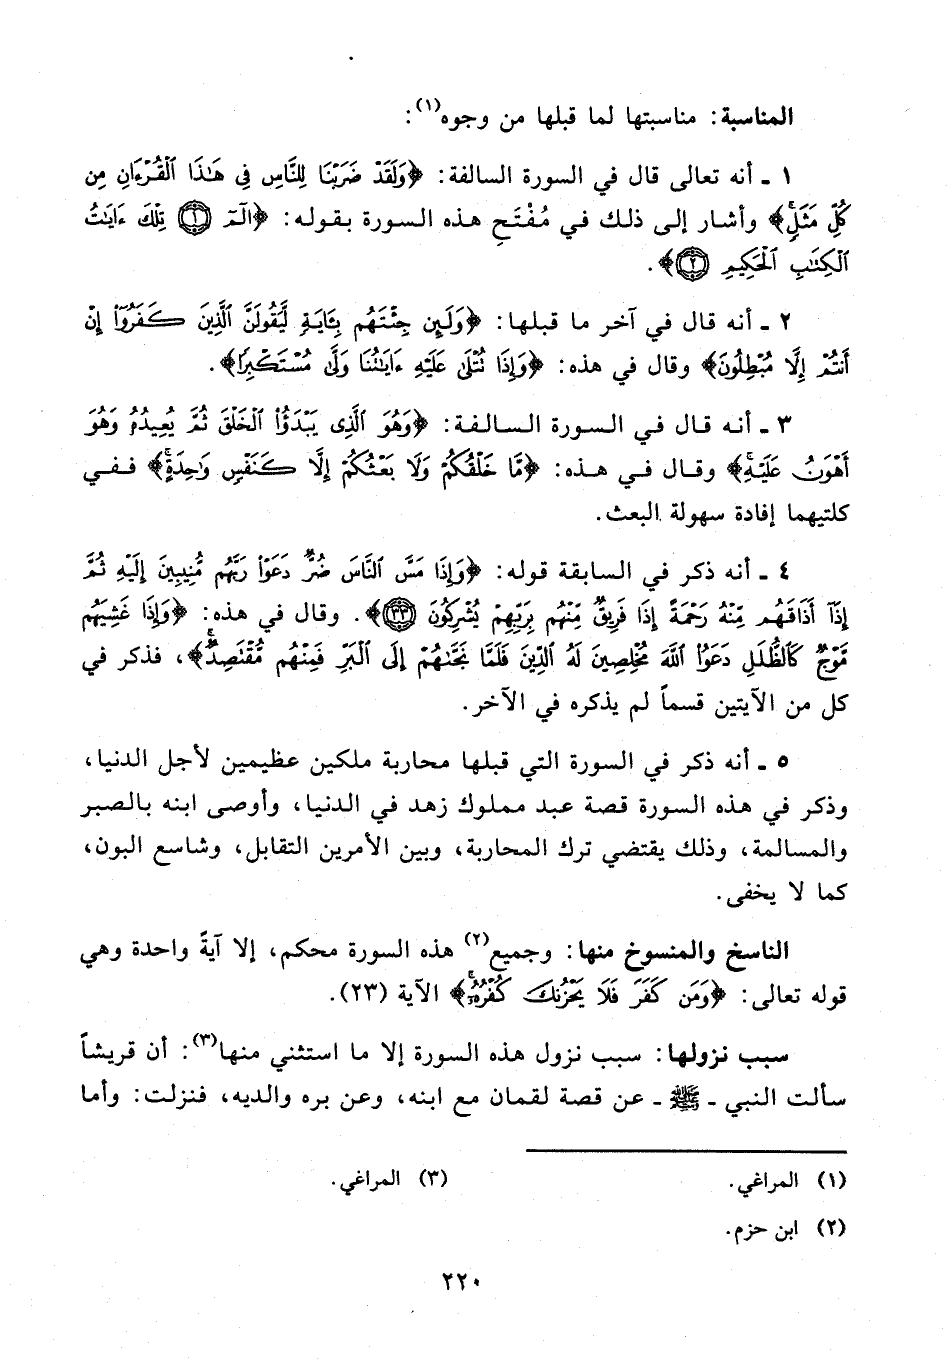 المناسبة: مناسبتها لما قبلها من وجوه(١):
١ ـ أنه تعالى قال في السورة السالفة: ﴿وَلَقَدْ ضَرَبْنَا لِلنَّاسِ فِي هَٰذَا ٱلْقُرْءَانِ مِن
كُلِّ مَثَلٍۚ﴾ وأشار إلى ذلك في مُفْتَحِ هذه السورة بقوله: ﴿الٓمٓ ۝١ تِلْكَ ءَايَٰتُ
ٱلْكِتَٰبِ ٱلْحَكِيمِ ۝٢﴾.
٢ ـ أنه قال في آخر ما قبلها: ﴿وَلَئِن جِئْتَهُم بِـَٔايَةٍ لَّيَقُولَنَّ ٱلَّذِينَ كَفَرُوٓا۟ إِنْ
أَنتُمْ إِلَّا مُبْطِلُونَ﴾ وقال في هذه: ﴿وَإِذَا تُتْلَىٰ عَلَيْهِ ءَايَٰتُنَا وَلَّىٰ مُسْتَكْبِرًا﴾.
٣ ـ أنه قال في السورة السالفة: ﴿وَهُوَ ٱلَّذِى يَبْدَؤُا۟ ٱلْخَلْقَ ثُمَّ يُعِيدُهُۥ وَهُوَ
أَهْوَنُ عَلَيْهِۚ﴾ وقال في هذه: ﴿مَّا خَلْقُكُمْ وَلَا بَعْثُكُمْ إِلَّا كَنَفْسٍ وَٰحِدَةٍۗ﴾ ففي
كلتيهما إفادة سهولة البعث.
٤ ـ أنه ذكر في السابقة قوله: ﴿وَإِذَا مَسَّ ٱلنَّاسَ ضُرٌّ دَعَوْا۟ رَبَّهُم مُّنِيبِينَ إِلَيْهِ ثُمَّ
إِذَآ أَذَاقَهُم مِّنْهُ رَحْمَةً إِذَا فَرِيقٌ مِّنْهُم بِرَبِّهِمْ يُشْرِكُونَ ۝٣٣﴾. وقال في هذه: ﴿وَإِذَا غَشِيَهُم
مَّوْجٌ كَٱلظُّلَلِ دَعَوُا۟ ٱللَّهَ مُخْلِصِينَ لَهُ ٱلدِّينَ فَلَمَّا نَجَّىٰهُمْ إِلَى ٱلْبَرِّ فَمِنْهُم مُّقْتَصِدٌۚ﴾، فذكر في
كل من الآيتين قسماً لم يذكره في الآخر.
٥ ـ أنه ذكر في السورة التي قبلها محاربة ملكين عظيمين لأجل الدنيا،
وذكر في هذه السورة قصة عبد مملوك زهد في الدنيا، وأوصى ابنه بالصبر
والمسالمة، وذلك يقتضي ترك المحاربة، وبين الأمرين التقابل، وشاسع البون،
كما لا يخفى.
الناسخ والمنسوخ منها: وجميع(٢) هذه السورة محكم، إلا آيةً واحدة وهي
قوله تعالى: ﴿وَمَن كَفَرَ فَلَا يَحْزُنكَ كُفْرُهُۥٓۚ﴾ الآية (٢٣).
سبب نزولها: سبب نزول هذه السورة إلا ما استثني منها(٣): أن قريشاً
سألت النبي ـ ﷺ ـ عن قصة لقمان مع ابنه، وعن بره والديه، فنزلت: وأما
(١) المراغي.
(٣) المراغي.
(٢) ابن حزم.
٢٢٠